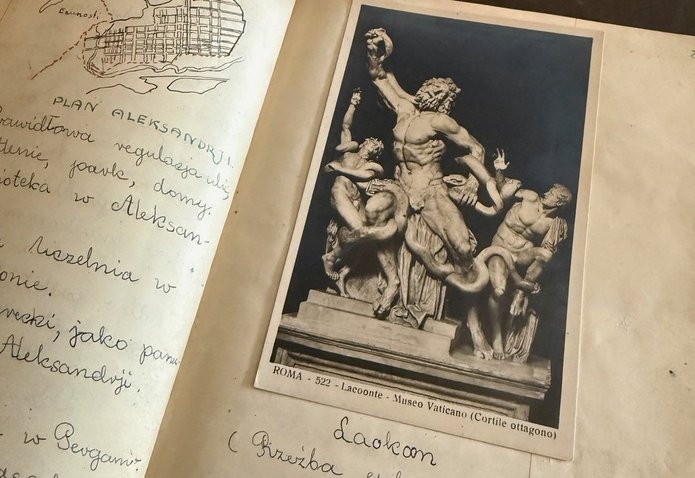 Eunostu
PLAN ALEKSANDRJI.
regulacja ulic,
park, domy.
w Aleksan-
Uczelnia w
onie.
jako panu
Aleksandrji.
w Pergam
ROMA - 522 - Lacoonte - Museo Vaticano (Cortile ottagono)
Laokoon
( Rzeźba